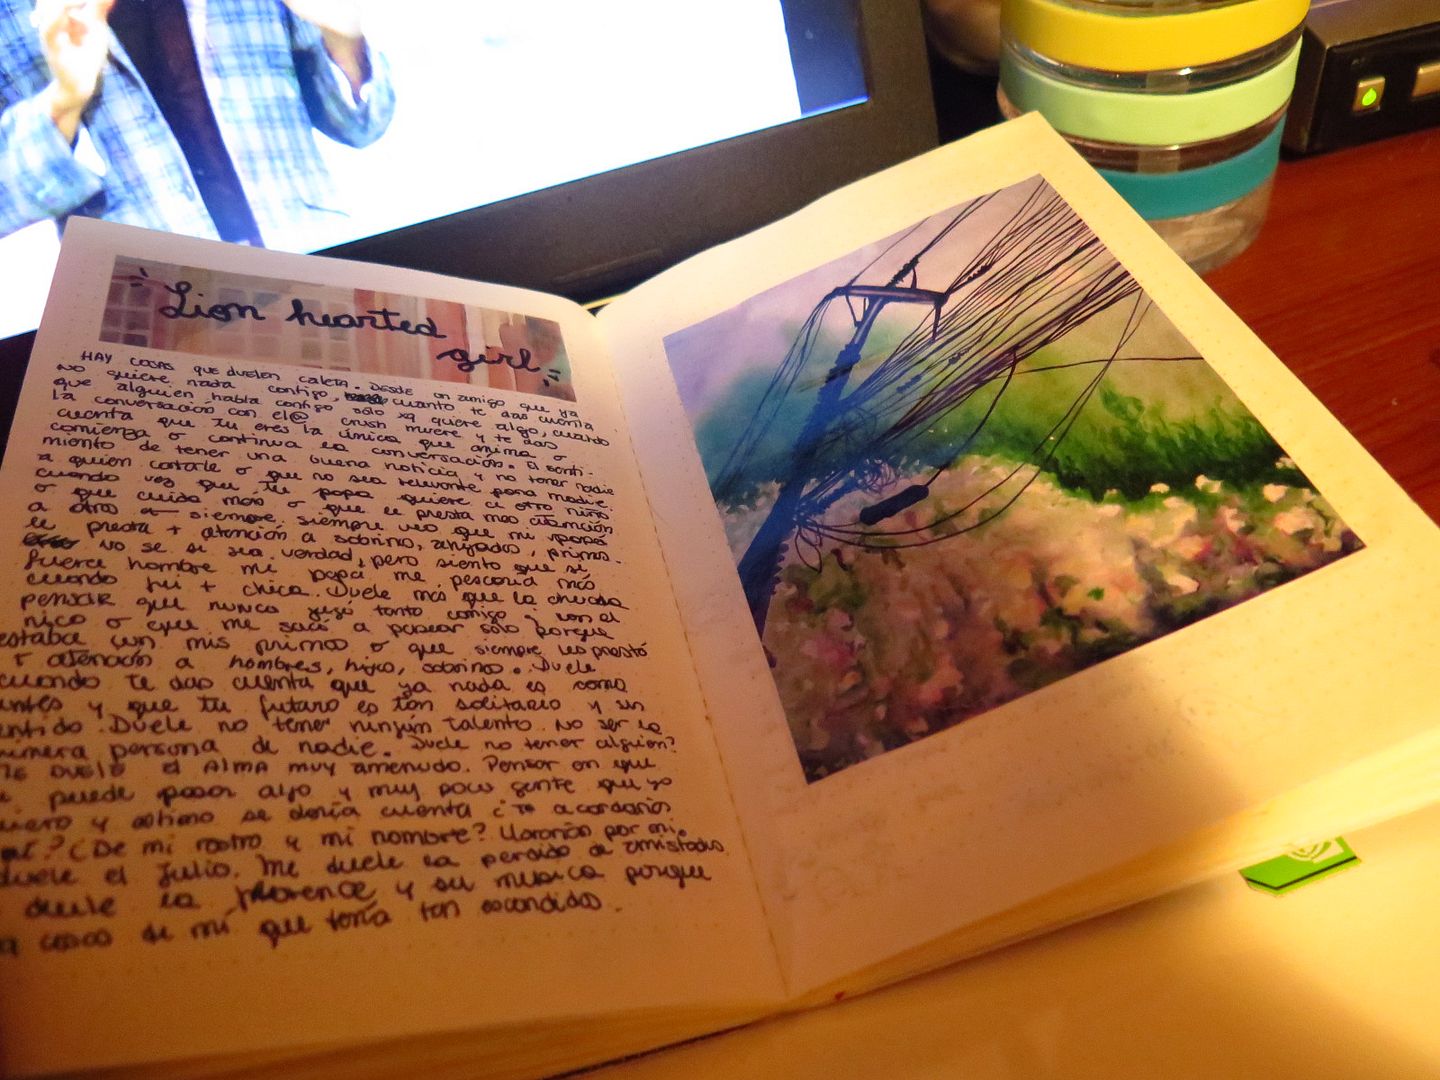 Lion hearted
girl
HAY cosas que duelen caleta. Desde un amigo que ya
no quiere nada contigo, cuanto te das cuenta
que alguien habla contigo solo xq quiere algo, cuando
la conversación con el@ crush muere y te das
cuenta que tu eres la única que anima o
comienza o continua la conversación. El senti-
miento de tener una buena noticia y no tener nadie
a quien contarle o que no sea relevante para nadie.
cuando vez que tu papa quiere a otro niño
o que cuida más o que le presta mas atención
a otro siempre. siempre veo que mi papá
le presta + atención a sobrino, ahijados, primo.
no se si sea verdad, pero siento que si
fuera hombre mi papá me pescaria más
cuando fui + chica. Duele más que la chucha
pensar que nunca jugó tanto conmigo y con el
nico o que me sacó a pasear solo porque
estaba con mis primos o que siempre les prestó
+ atención a hombres, hijo, sobrinos. Duele
cuando te das cuenta que ya nada es como
antes y que tu futuro es tan solitario y sin
entido. Duele no tener ningún talento. No ser la
rimera persona de nadie. Duele no tener alguien?
duele el ALMA muy amenudo. Pensar en que
puede pasar algo y muy poca gente que yo
uiero y estimo se daría cuenta ¿Te acordarías
mi? ¿De mi rostro y mi nombre? Llorarías por mi.
duele el Julio. Me duele la perdida de amistades.
duele la florence y su musica porque
cosas de mí que tenía tan escondidas.